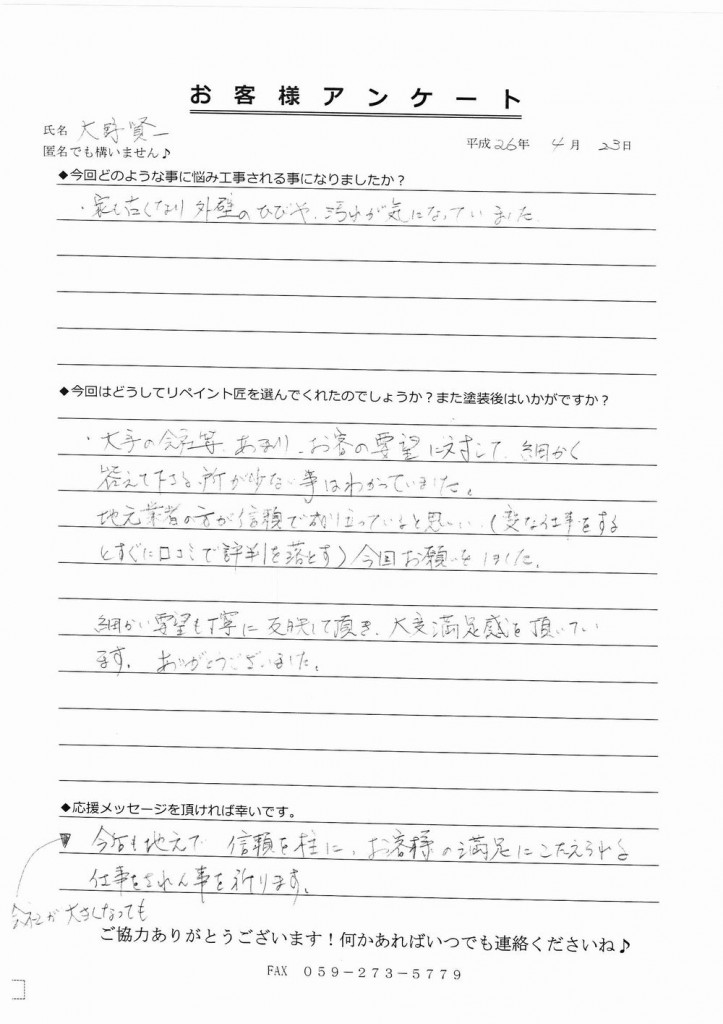 お客様アンケート
氏名 大野賢一
匿名でも構いません♪
平成26年 4月 23日
◆今回どのような事に悩み工事される事になりましたか？
・家も古くなり外壁のひびや、汚れが気になっていました
◆今回はどうしてリペイント匠を選んでくれたのでしょうか？また塗装後はいかがですか？
・大手の会社等、あまり、お客の要望に対して、細かく
答えて下さる所が少ない事はわかっていました。
地元業者の方が信頼で成り立っていると思い、（変な仕事をする
とすぐに口コミで評判を落とす）今回お願いをしました。
細かい要望も丁寧に反映して頂き、大変満足感を頂いてい
ます。ありがとうございました。
◆応援メッセージを頂ければ幸いです。
今后も地元で 信頼を柱に、お客様の満足にこたえられる
仕事をされん事を祈ります。
会社が大きくなっても
ご協力ありがとうございます！何かあればいつでも連絡くださいね♪
FAX 059－273－5779